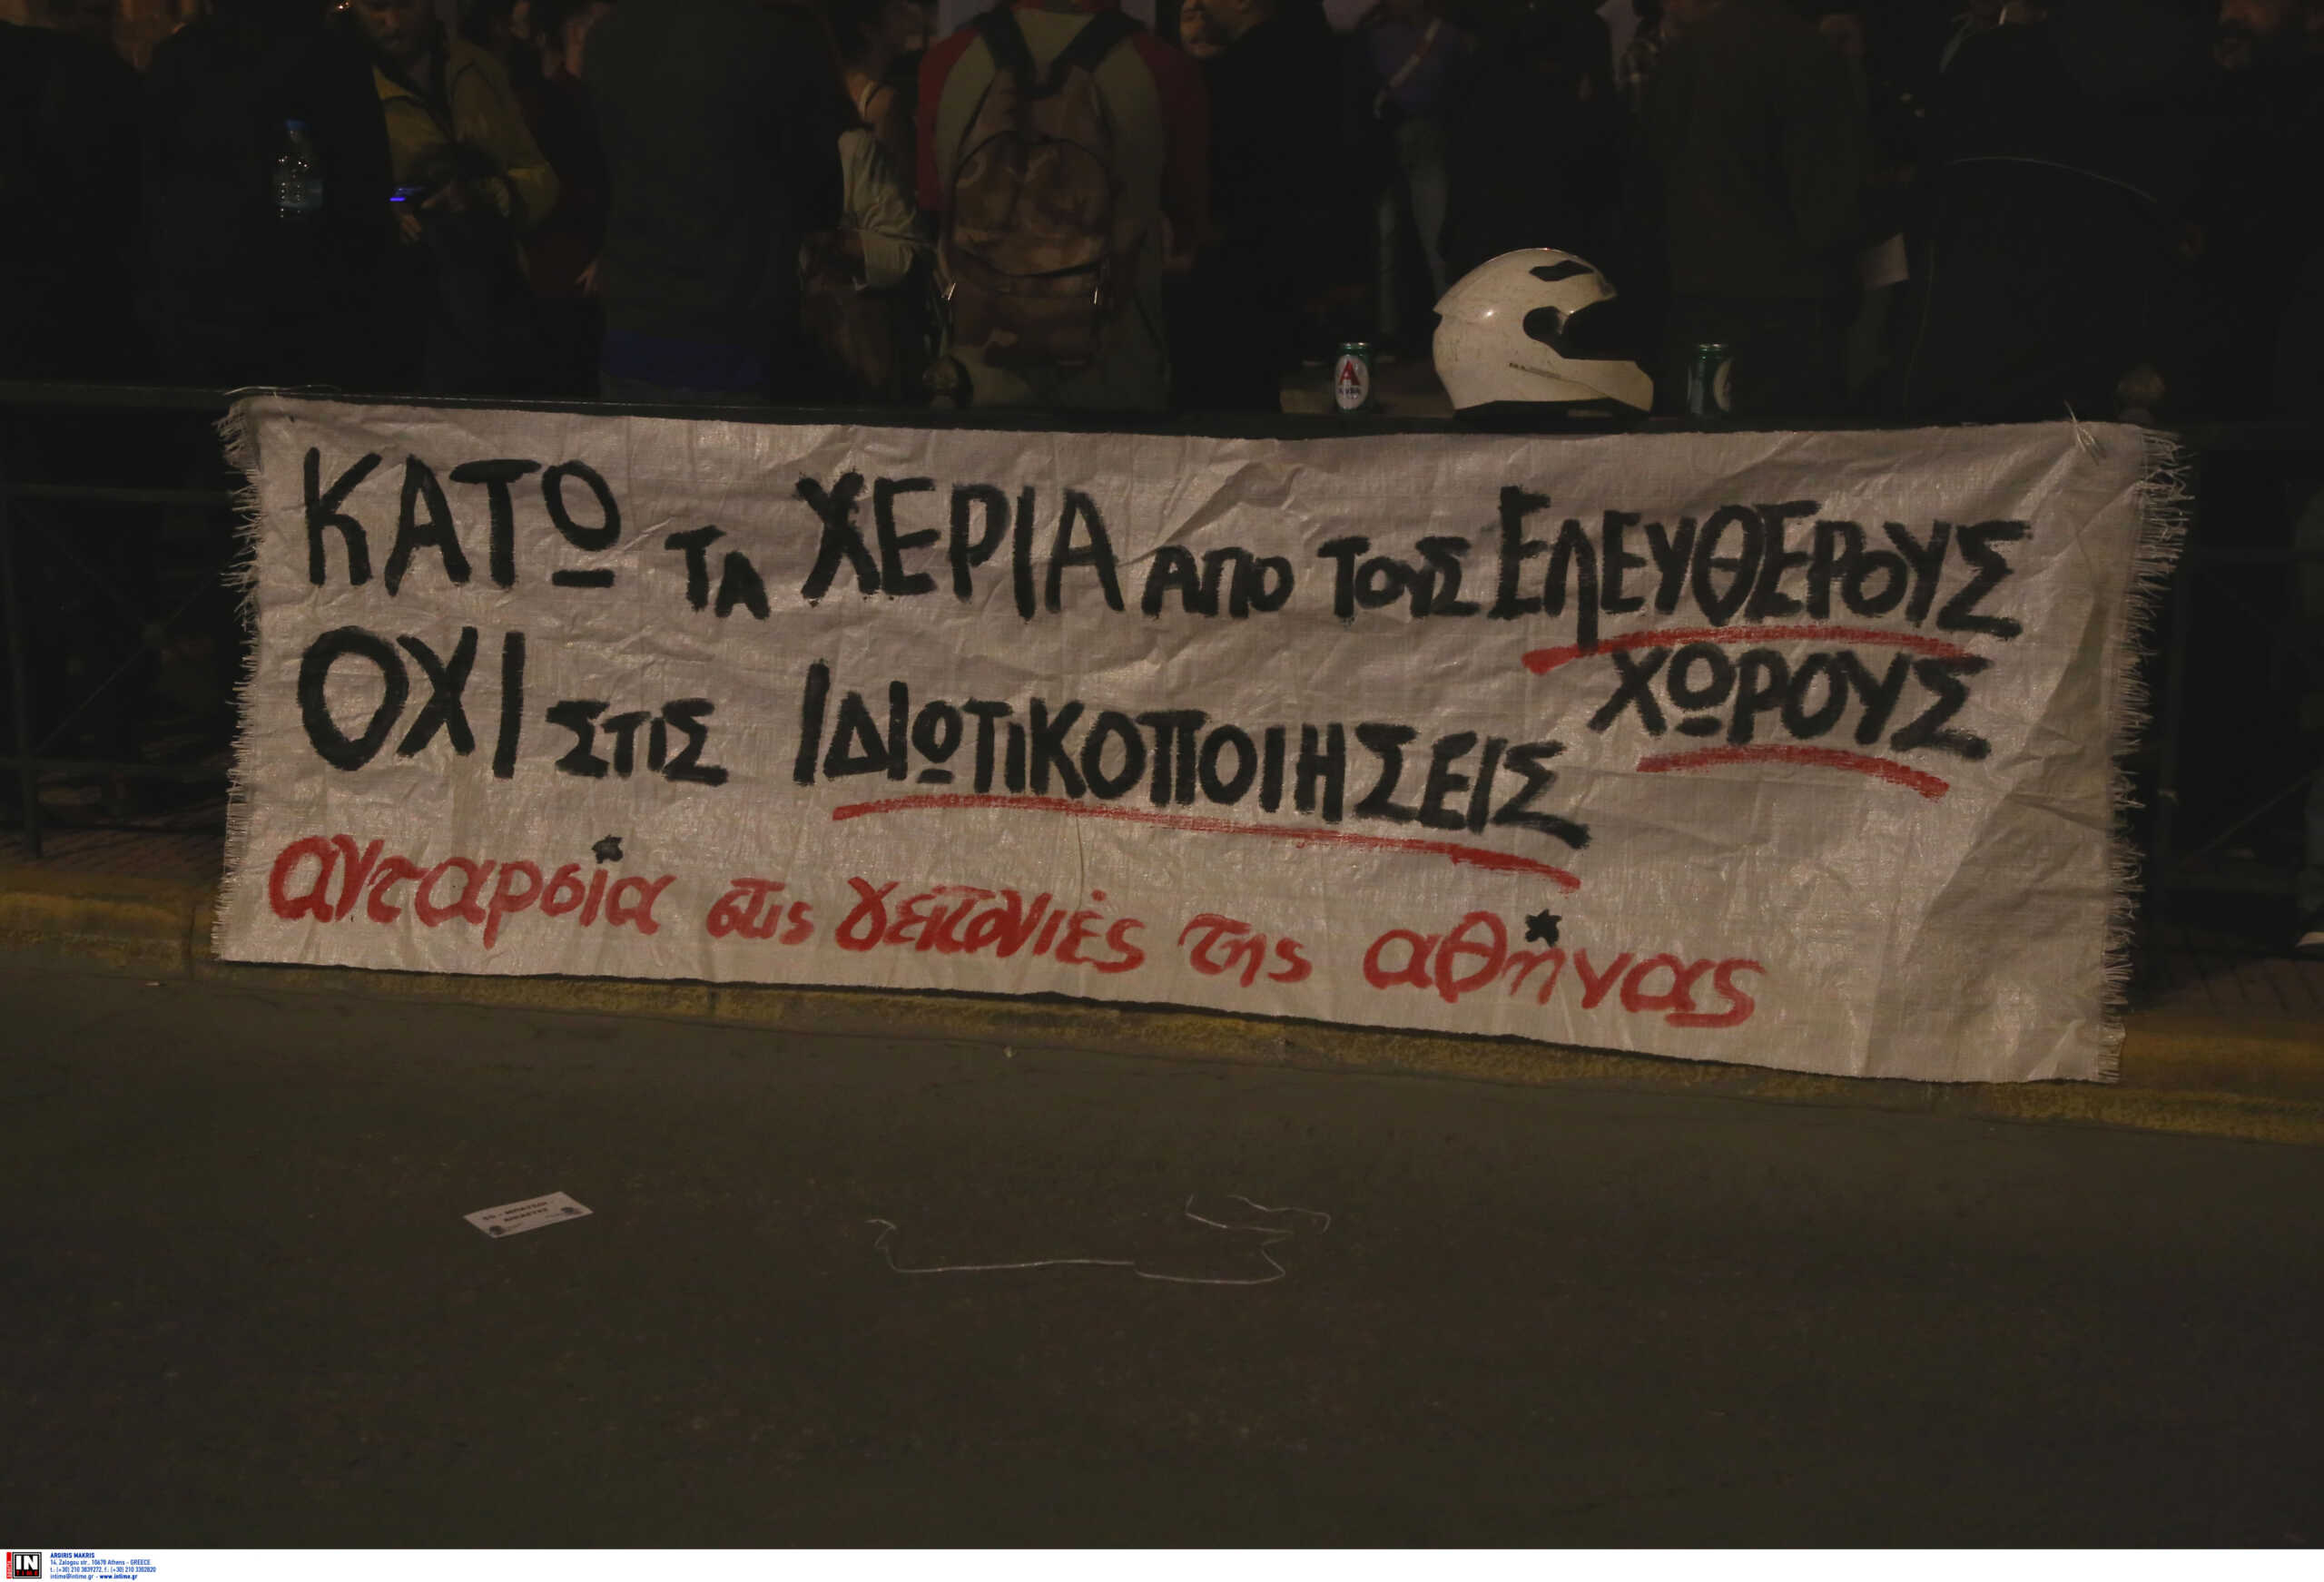 ΚΑΤΩ ΤΑ ΧΕΡΙΑ ΑΠΟ ΤΟΥΣ ΕΛΕΥΘΕΡΟΥΣ
ΧΩΡΟΥΣ
ΟΧΙ ΣΤΙΣ ΙΔΙΩΤΙΚΟΠΟΙΗΣΕΙΣ
ανταρσία στις γειτονιές της αθήνας
IN
TIME
ARGIRIS MAKRIS
14, Zalogou str., 10678 Athens - GREECE
t.: (+30) 210 3839272, f.: (+30) 210 3302820
intime@intime.gr - www.intime.gr